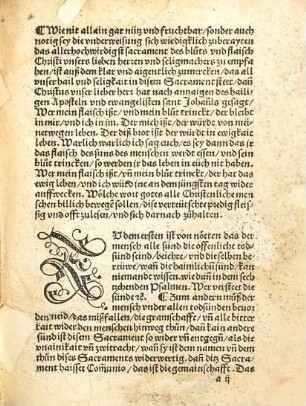 Wie nit allain gar nütz und fruchtbar/ sonder auch
notig sey die underweisung sich wirdigklich zuberayten
das allerhochwirdigst sacrament des bluts und flaisch
Christi unsers lieben herren und seligmachers zu empfa
hen/ ist auß dem klar und aigentlich zumercken/ das all
unser hail und seligkait in disem Sacrament steet/ dann
Christus unser lieber herr hat nach anzaigen des hailig
en Aposteln und ewangelisten sant Johanis gesagt/
Wer mein flaisch isst/ und mein blut trincket/ der bleibt
in mir/ und ich in im. Der mich isst/ der würdt von mei=
netwegen leben. Der diß brot isst der würdt in ewigkait
leben. Warlich warlich ich sag euch/ es sey dann das ir
das flaisch des suns des menschen werdt essen/ und sein
blut trincken/ so werden ir das leben in euch nit haben.
Wer mein flaisch isst/ und mein blut trincket/ der hat das
ewig leben/ und ich würd jne an dem jüngsten tag wider
auffwecken. Wölche wort gottes alle Christenliche men
schen billich bewegē sollen/ die vertreulich predig fleis=
sig und offt zulesen/ und sich darnach zühalten.
Zum ersten ist von nötten das der
mensch alle sünd die offenliche tod=
sünd seind/ beichte/ und dieselben be
rewe/ wañ die haimlich sünd/ kan
niemandt wissen. wie dañ in dem sech
tzehenden Psalmen. Wer versteet die
sünde ꝛc. Zum andern müß der
mensch under allen todsünden bevor
den neid/ das mißfallen/ die gramschafft/ uñ alle bitter
kait wider den menschen hinweg thün/ dañ kain andere
sünd ist disem Sacrament so wider uñ entgegñ/ als die
unainikait uñ zwitracht/ wañ sy ist dem namen uñ dem
thün dises Sacraments widerwertig. dañ ditz Sacra
ment haisset Comunio/ das ist die gemainschafft. Das
a ij